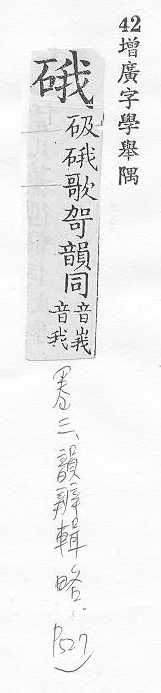 42增廣字學舉隅
硪
砐硪歌哿韻同
音峩
音我
卷三、韻辨輯略、P527